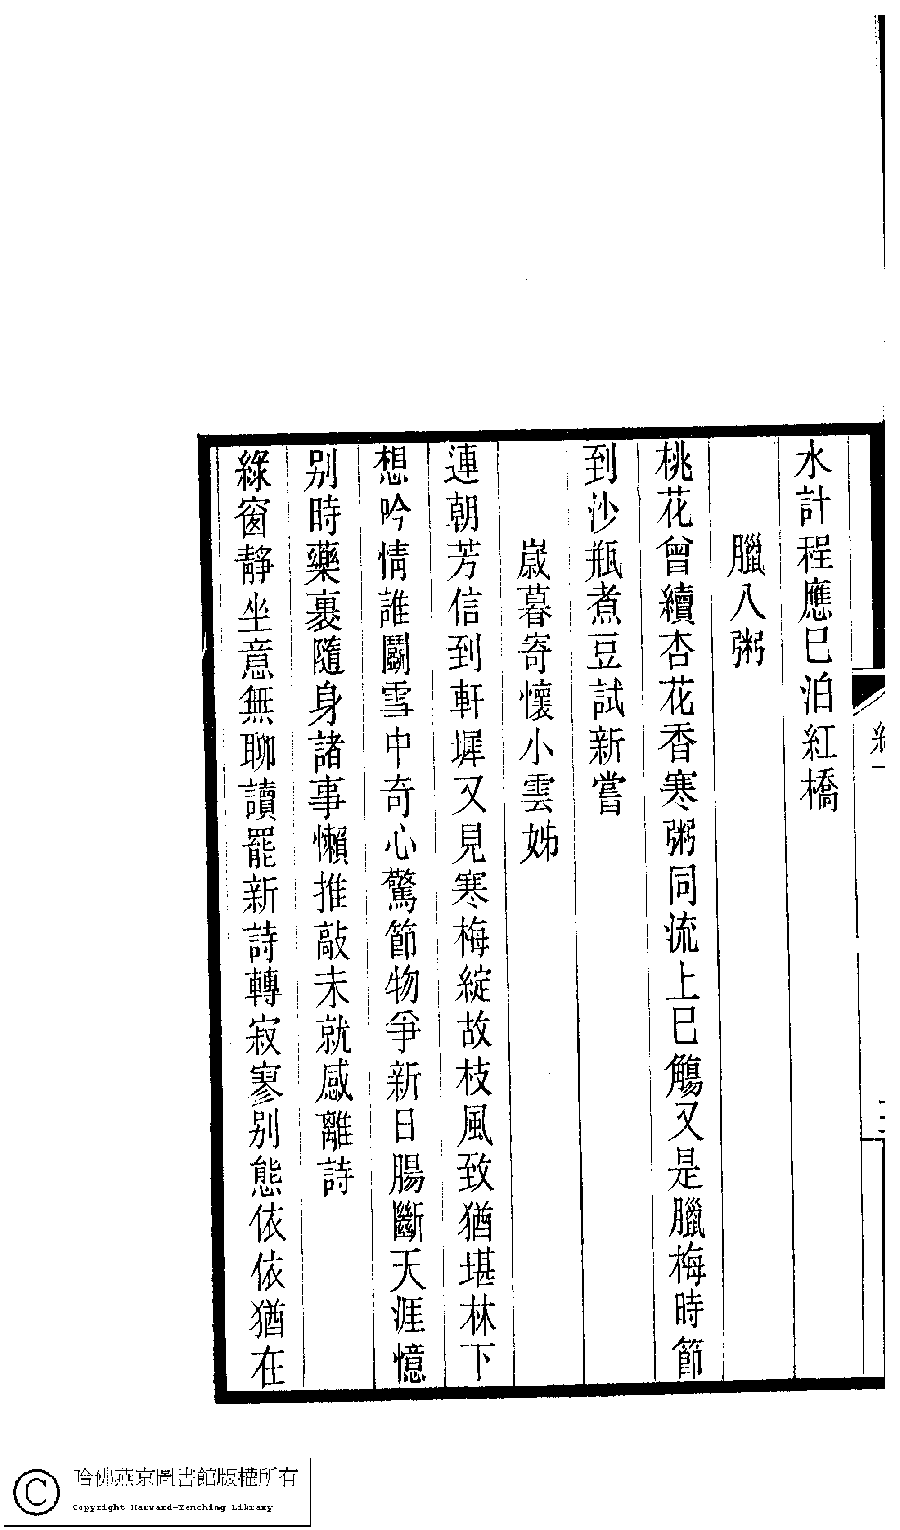 水計程應已泊紅橋
臘八粥
桃花曾續杏花香寒粥同流上巳觴又是臘梅時節
到沙瓶煮豆試新嘗
歲暮寄懷小雲姊
連朝芳信到軒墀又見寒梅綻故枝風致猶堪林下
想吟情誰鬭雪中奇心驚節物爭新日腸斷天涯憶
别時藥裹隨身諸事懶推敲未就感離詩
綠窗靜坐意無聊讀罷新詩轉寂寥别態依依猶在
哈佛燕京圖書館版權所有
Copyright Harvard-Yenching Library